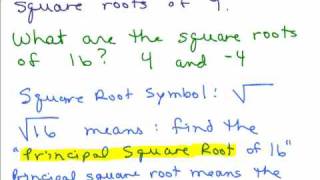 square roots of 9.
What are the square roots
of 16? 4 and -4
Square Root Symbol: √
√16 means: find the
"Principal Square Root of 16"
Principal square root means the